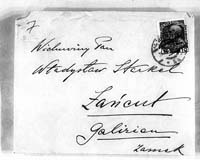 7
Wielmożny Pan
Władysław
Łańcut
Galizien
zamek